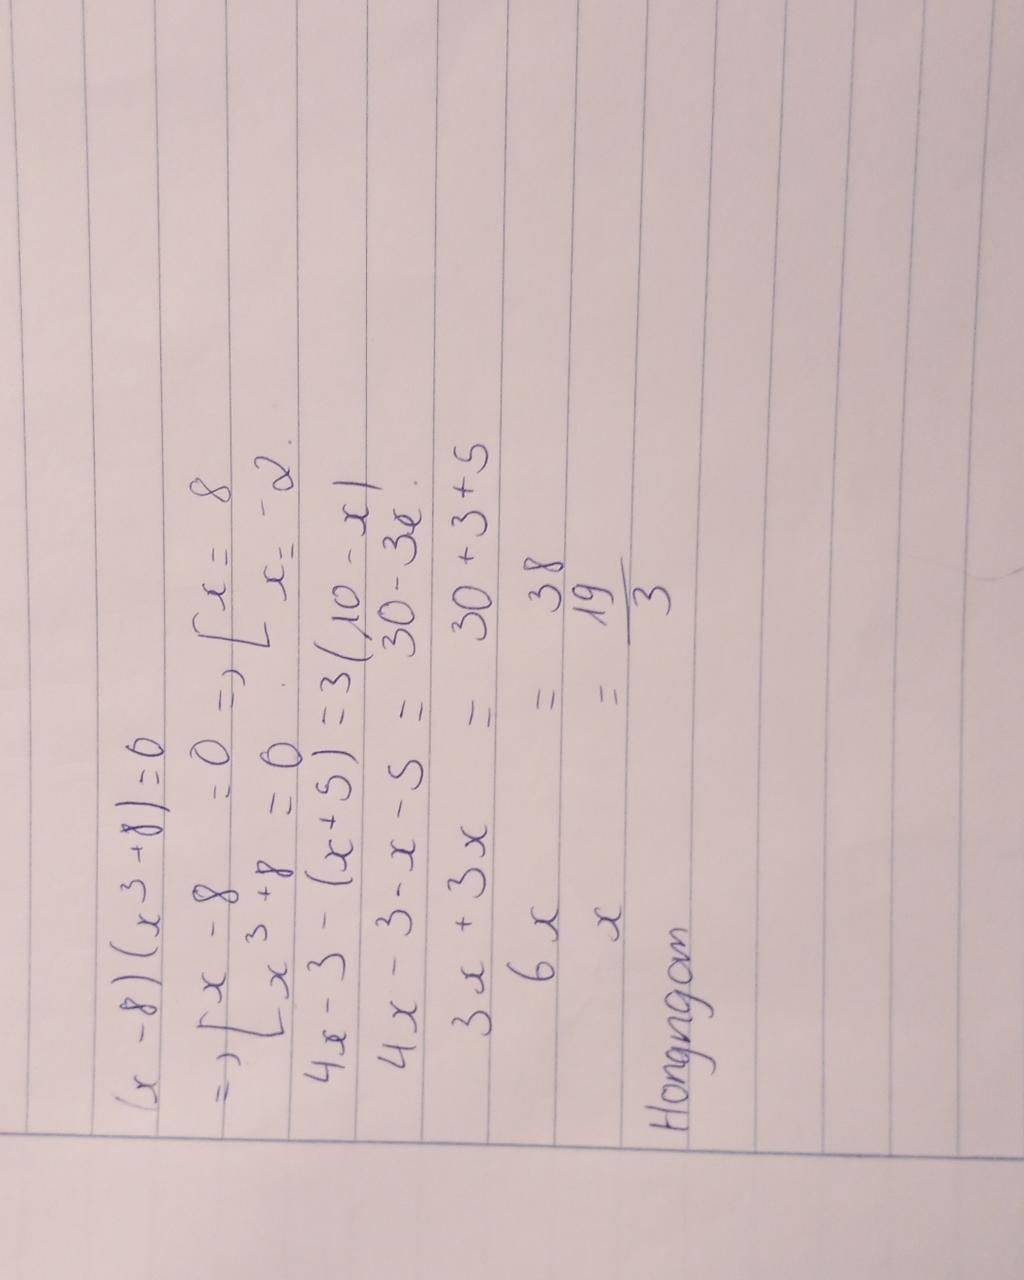 (x - 8)(x³ + 8) = 0
=> [ x - 8 = 0 => [ x = 8
[ x³ + 8 = 0 [ x = -2.
4x - 3 - (x + 5) = 3(10 - x)
4x - 3 - x - 5 = 30 - 3x.
3x + 3x = 30 + 3 + 5
6x = 38
x = 19/3
Hongngam